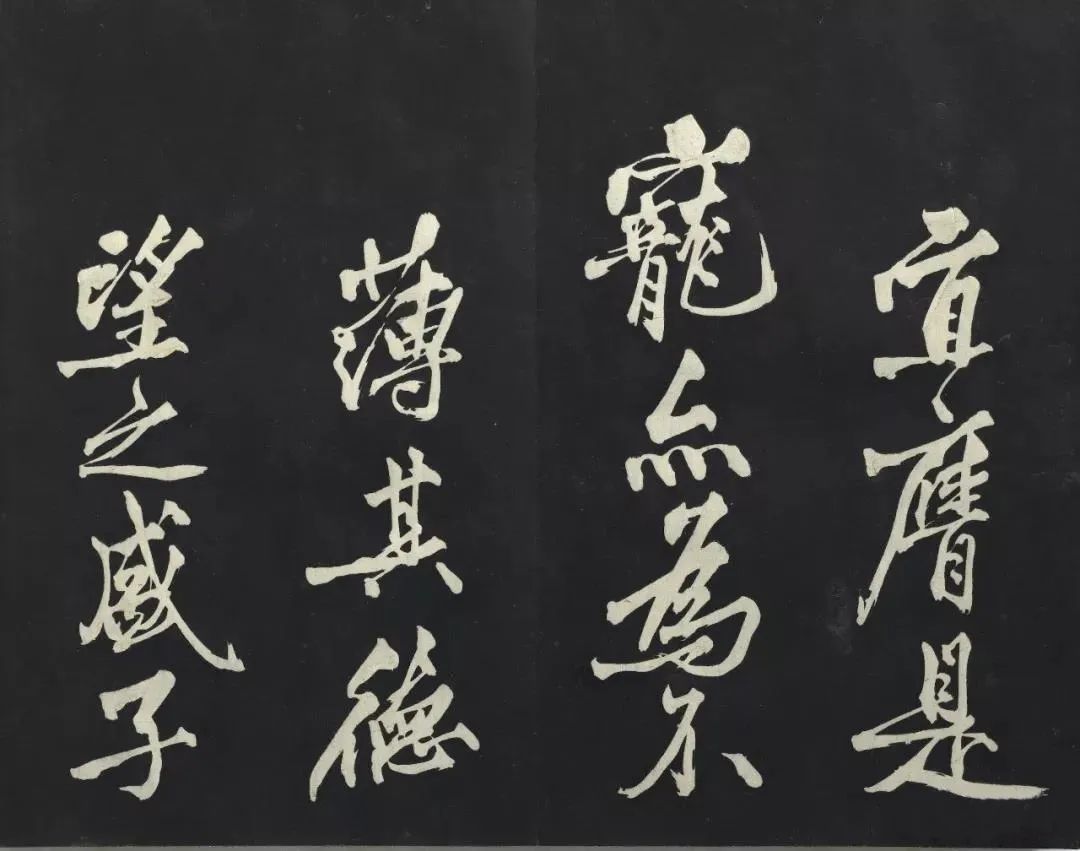 宜膺是
寵亦為不
薄其德
望之盛子